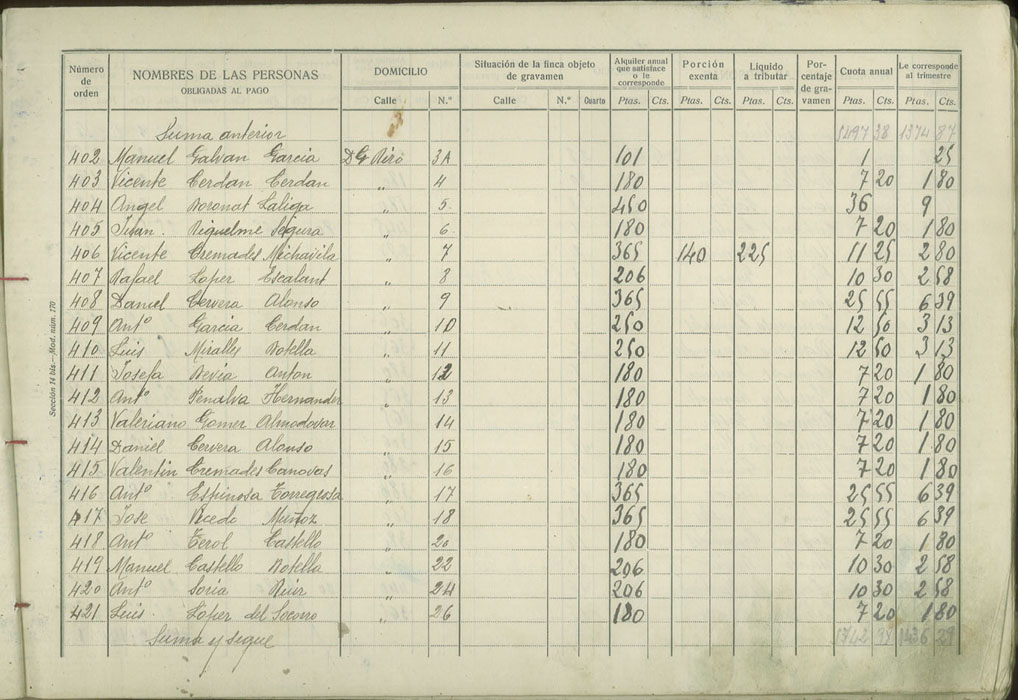 Número de orden | NOMBRES DE LAS PERSONAS OBLIGADAS AL PAGO | DOMICILIO | Situación de la finca objeto de gravamen | Alquiler anual que satisface o le corresponde | Porción exenta | Líquido a tributar | Por-centaje de gra-vamen | Cuota anual | Le corresponde al trimestre
Calle | N.º | Calle | N.º | Cuarto | Ptas. | Cts. | Ptas. | Cts. | Ptas. | Cts. | Ptas. | Cts. | Ptas. | Cts.
Suma anterior 38 1374 87
402 Manuel Galvan Garcia 3A 101 1 25
403 Vicente Cerdan Cerdan " 4 180 7 20 1 80
404 Angel Boronat Laliga " 5 450 36 9
405 Juan Riquelme Segura " 6 180 7 20 1 80
406 Vicente Cremades Michavila " 7 365 140 225 11 25 2 80
407 Rafael Lopez Escalant " 8 206 10 30 2 58
408 Daniel Cervera Alonso " 9 365 25 55 6 39
409 Antº Garcia Cerdan " 10 250 12 50 3 13
410 Luis Miralles Botella " 11 250 12 50 3 13
411 Josefa Bevia Anton " 12 180 7 20 1 80
412 Antº Penalva Hernander " 13 180 7 20 1 80
413 Valeriano Gomer Almodovar " 14 180 7 20 1 80
414 Daniel Cervera Alonso " 15 180 7 20 1 80
415 Valentin Cremades Canovas " 16 180 7 20 1 80
416 Antº Espinosa Torregrosa " 17 365 25 55 6 39
417 Jose Picedo Muñoz " 18 365 25 55 6 39
418 Antº Terol Castello " 20 180 7 20 1 80
419 Manuel Castello Botella " 22 206 10 30 2 58
420 Antº Soria Ruir " 24 206 10 30 2 58
421 Luis Loper del Socorro " 26 180 7 20 1 80
Suma y sigue 1436 29
Sección 14 bis.—Mod. núm. 170